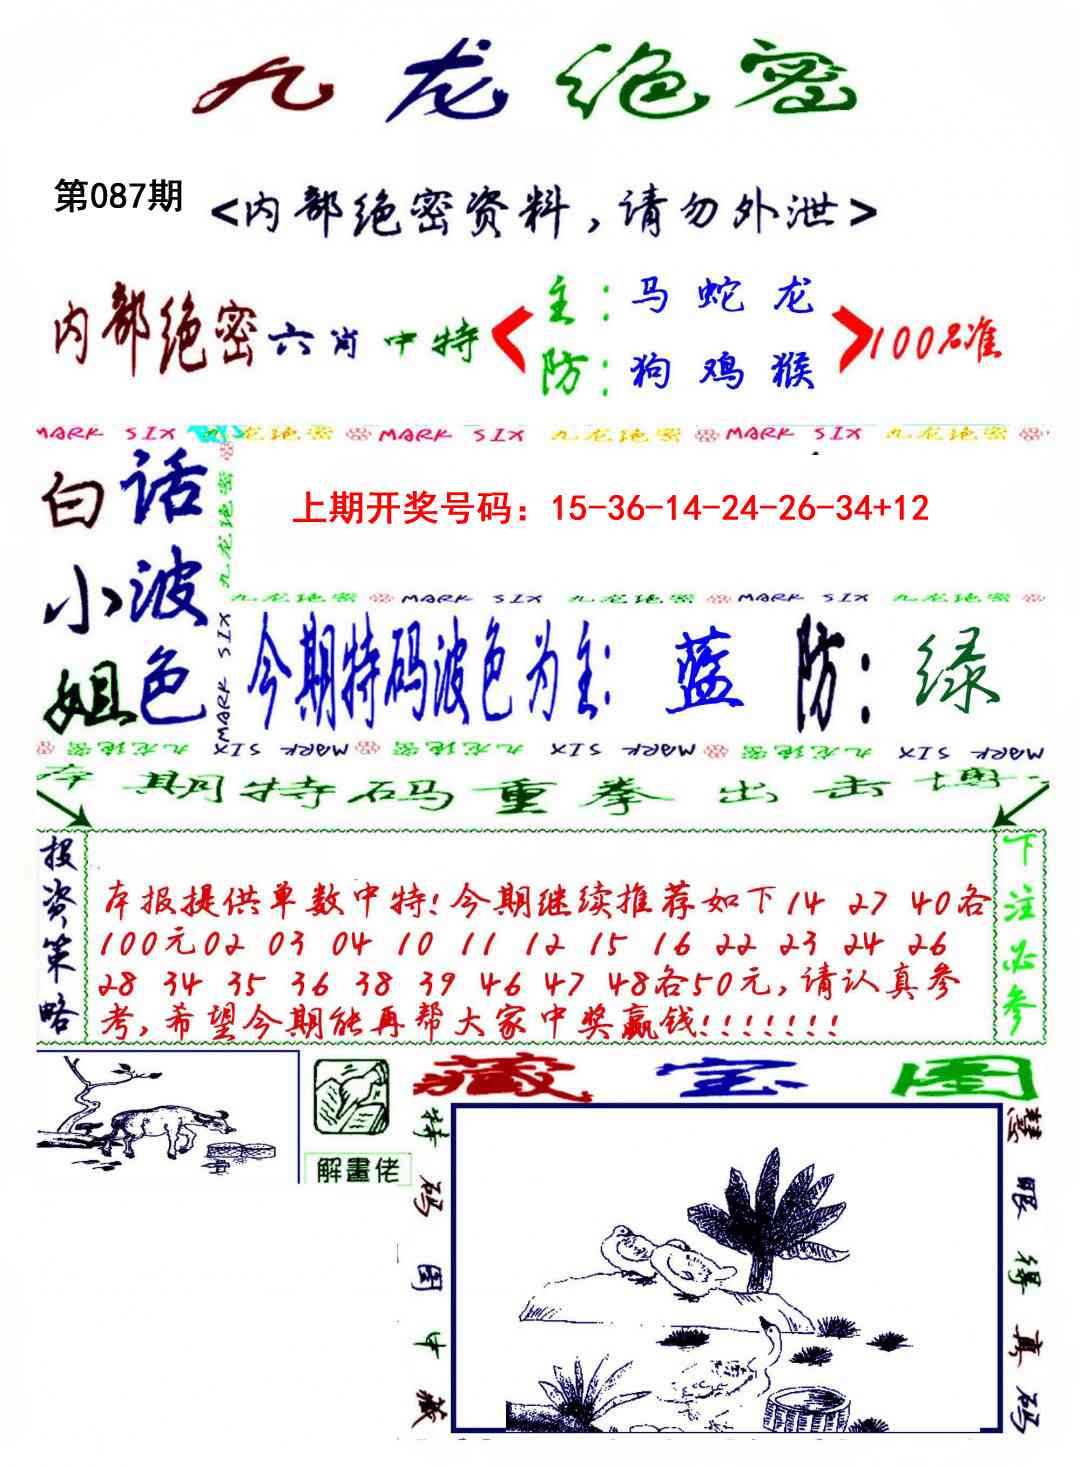 九龙绝密
第087期
<内部绝密资料,请勿外泄>
内部绝密六肖中特
主:马蛇龙
防:狗鸡猴
100%准
MARK SIX 九龙绝密 MARK SIX 九龙绝密 MARK SIX 九龙绝密
白话
小波
姐色
九龙绝密
MARK SIX
上期开奖号码：15-36-14-24-26-34+12
九龙绝密 MARK SIX 九龙绝密 MARK SIX 九龙绝密
今期特码波色为主:蓝 防:绿
九龙绝密 MARK SIX 九龙绝密 MARK SIX 九龙绝密 MARK SIX
本期特码重拳出击博
投资策略
本报提供单数中特!今期继续推荐如下14 27 40各
100元02 03 04 10 11 12 15 16 22 23 24 26
28 34 35 36 38 39 46 47 48各50元,请认真参
考,希望今期能再帮大家中奖赢钱!!!!!!!
下注必参
解畫佬
藏宝图
特码图中藏
慧眼得真码